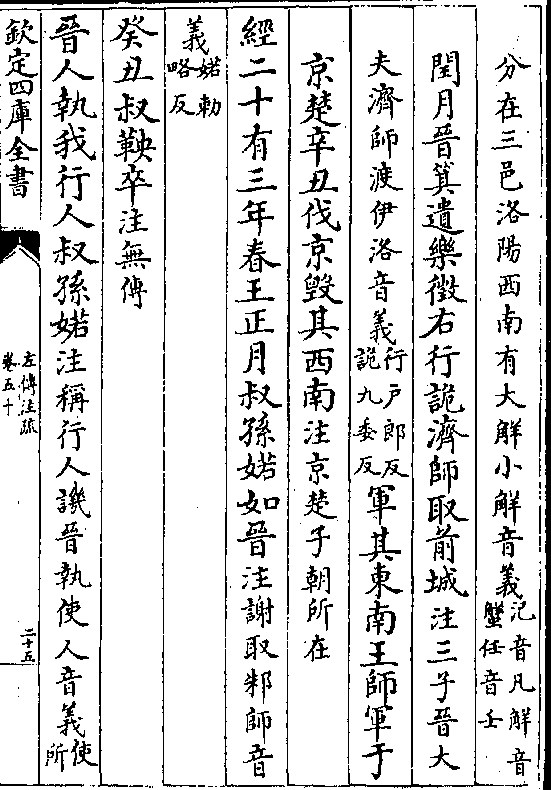 分在三邑洛陽西南有大解小解音義氾音凡解音蟹任音壬
閏月晉箕遺樂徵右行詭濟師取前城注三子晉大
夫濟師渡伊洛音義行戶郎反詭九委反軍其東南王師軍于
京楚辛丑伐京毀其西南注京楚子朝所在
經二十有三年春王正月叔孫婼如晉注謝取邾師音
義婼勑略反
癸丑叔鞅卒注無傳
晉人執我行人叔孫婼注稱行人譏晉執使人音義使所
欽定四庫全書
左傳注疏
卷五十
二十五